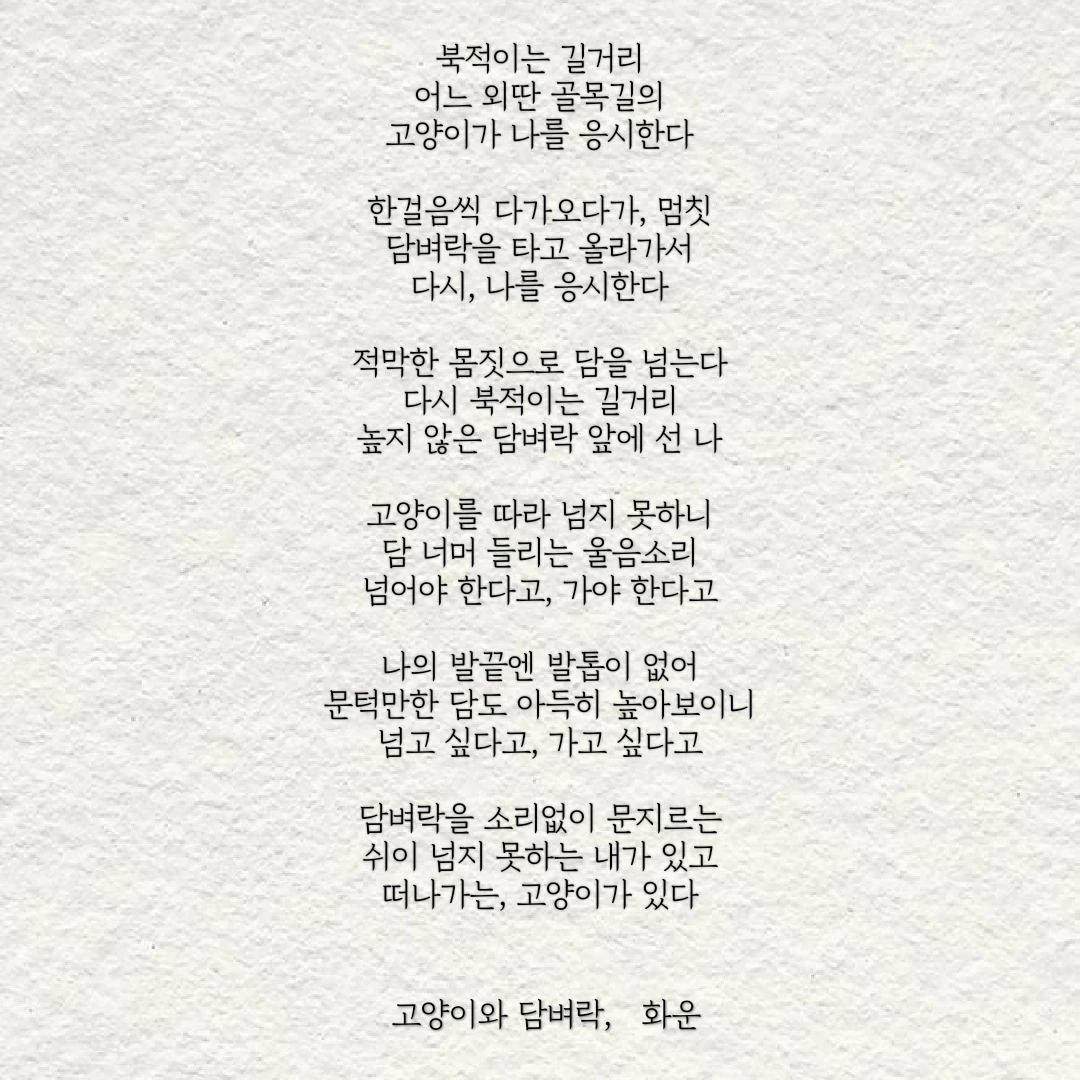 북적이는 길거리
어느 외딴 골목길의
고양이가 나를 응시한다
한걸음씩 다가오다가, 멈칫
담벼락을 타고 올라가서
다시, 나를 응시한다
적막한 몸짓으로 담을 넘는다
다시 북적이는 길거리
높지 않은 담벼락 앞에 선 나
고양이를 따라 넘지 못하니
담 너머 들리는 울음소리
넘어야 한다고, 가야 한다고
나의 발끝엔 발톱이 없어
문턱만한 담도 아득히 높아보이니
넘고 싶다고, 가고 싶다고
담벼락을 소리없이 문지르는
쉬이 넘지 못하는 내가 있고
떠나가는, 고양이가 있다
고양이와 담벼락, 화운